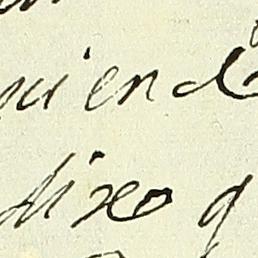 uiend
dixo q